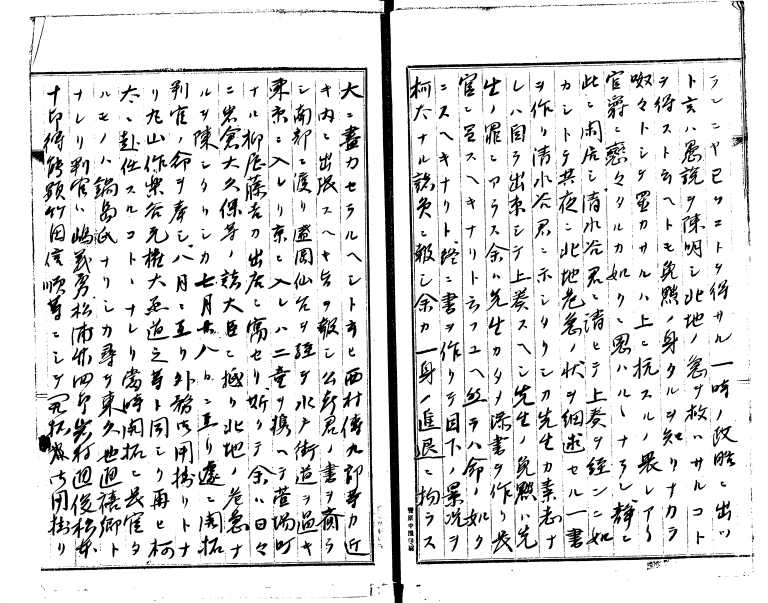 ランニヤ已ムコトヲ得サル一時ノ政略ニ出ツ
ト言ハ愚説ヲ陳明シ此地ノ急ヲ救ハサルコト
ヲ得ストモ免黜ノ身タルヲ知リナカラ
呶々トシテ置カサルハ上ニ抗スルノ畏レアリ
官爵ニ戀々タルカ如クニ思ハルヽナラン静ニ
此ニ閑居シ清水谷君ニ請ヒテ上奏ヲ経ンニ如
カシトテ其夜ニ此地危急ノ状ヲ細述セル一書
ヲ作リ清水谷君ニ示シタリシカ先生カ素志ナ
レハ自ラ出東シテ上奏スヘシ先生ノ免黜ハ先
生ノ罪ニアラス余ハ先生カタメ添書ヲ作リ長
官ニ呈スヘキナリト云フユヘ然ラハ命ノ如ク
ニスヘキナリト書ヲ作リテ目下ノ景況ヲ
柯太ナル諸員ニ報シ余カ一身ノ進退ニ拘ラス
大ニ盡力セラルヘシト云ヒ西村傳九郎等カ近
キ内ニ出張スヘキ旨ヲ報シ公考君ノ書ヲ齎ラ
シ南部ニ渡リ盛岡仙台ヲ経テ水戸街道ヲ過キ
東京ニ入レリ京ニ入レハ二童ヲ携ヘテ萱場町
ナル柳屋藤吉カ出店ニ寓セリ斯クテ余ハ日々
ニ岩倉大久保等ノ諸大臣ニ抵リ此地ノ危急ナ
ルヲ陳シタリシカ七月廿八日ニ至リ遽ニ開拓
判官ノ命ヲ奉シ八月ニ至リ外務省用掛リトナ
リ丸山作楽谷元権大丞道之等ト同シク再ヒ柯
太ニ赴任スルコトヽナレリ當時開拓ニ長官タ
ルモノハ鍋島氏ナリシカ尋テ東久世通禧卿ト
ナレリ判官ハ嶋義勇松浦竹四郎岩村通俊松本
十郎得能頴竹田信順等ニシテ開拓使御用掛リ